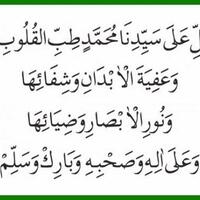 لِّ عَلَى سَيِّدِنَا مُحَمَّدٍ طِبِّ الْقُلُوبِ
وَعَفِيَةِ الْاَبْدَانِ وَشِفَائِهَا
وَنُورِ الْاَبْصَارِ وَضِيَائِهَا
وَعَلَى اٰلِهِ وَصَحْبِهِ وَبَارِكْ وَسَلِّمْ